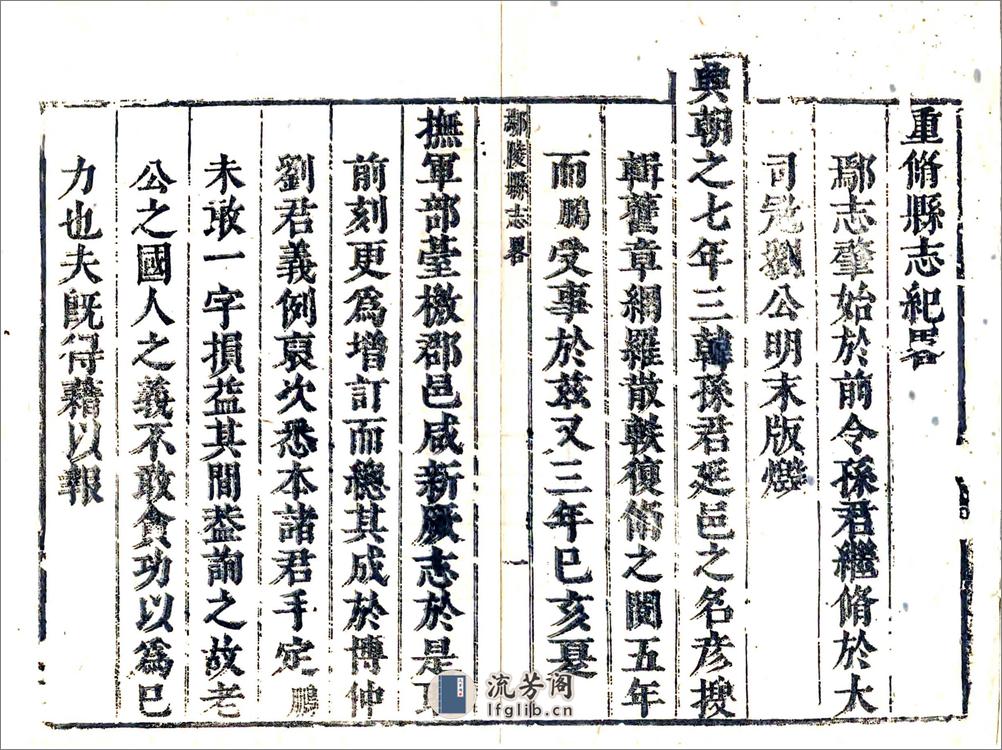 重脩縣志紀畧
鄢志肇始於前令孫君繼脩於大
司㓂劉公明末版燬
興朝之七年三韓孫君延邑之名彦搜
輯舊章網羅散軼復脩之閱五年
而鵬受事於兹又三年已亥夏
鄢陵縣志畧
一
撫軍部臺檄郡邑咸新厥志於是
前刻更為增訂而總其成於博仲
劉君義例裒次悉本諸君手定鵬
未敢一字損益其間葢詢之故老
公之國人之義不敢貪功以為已
力也夫既得藉以報
流芳阁
lfglib.cn